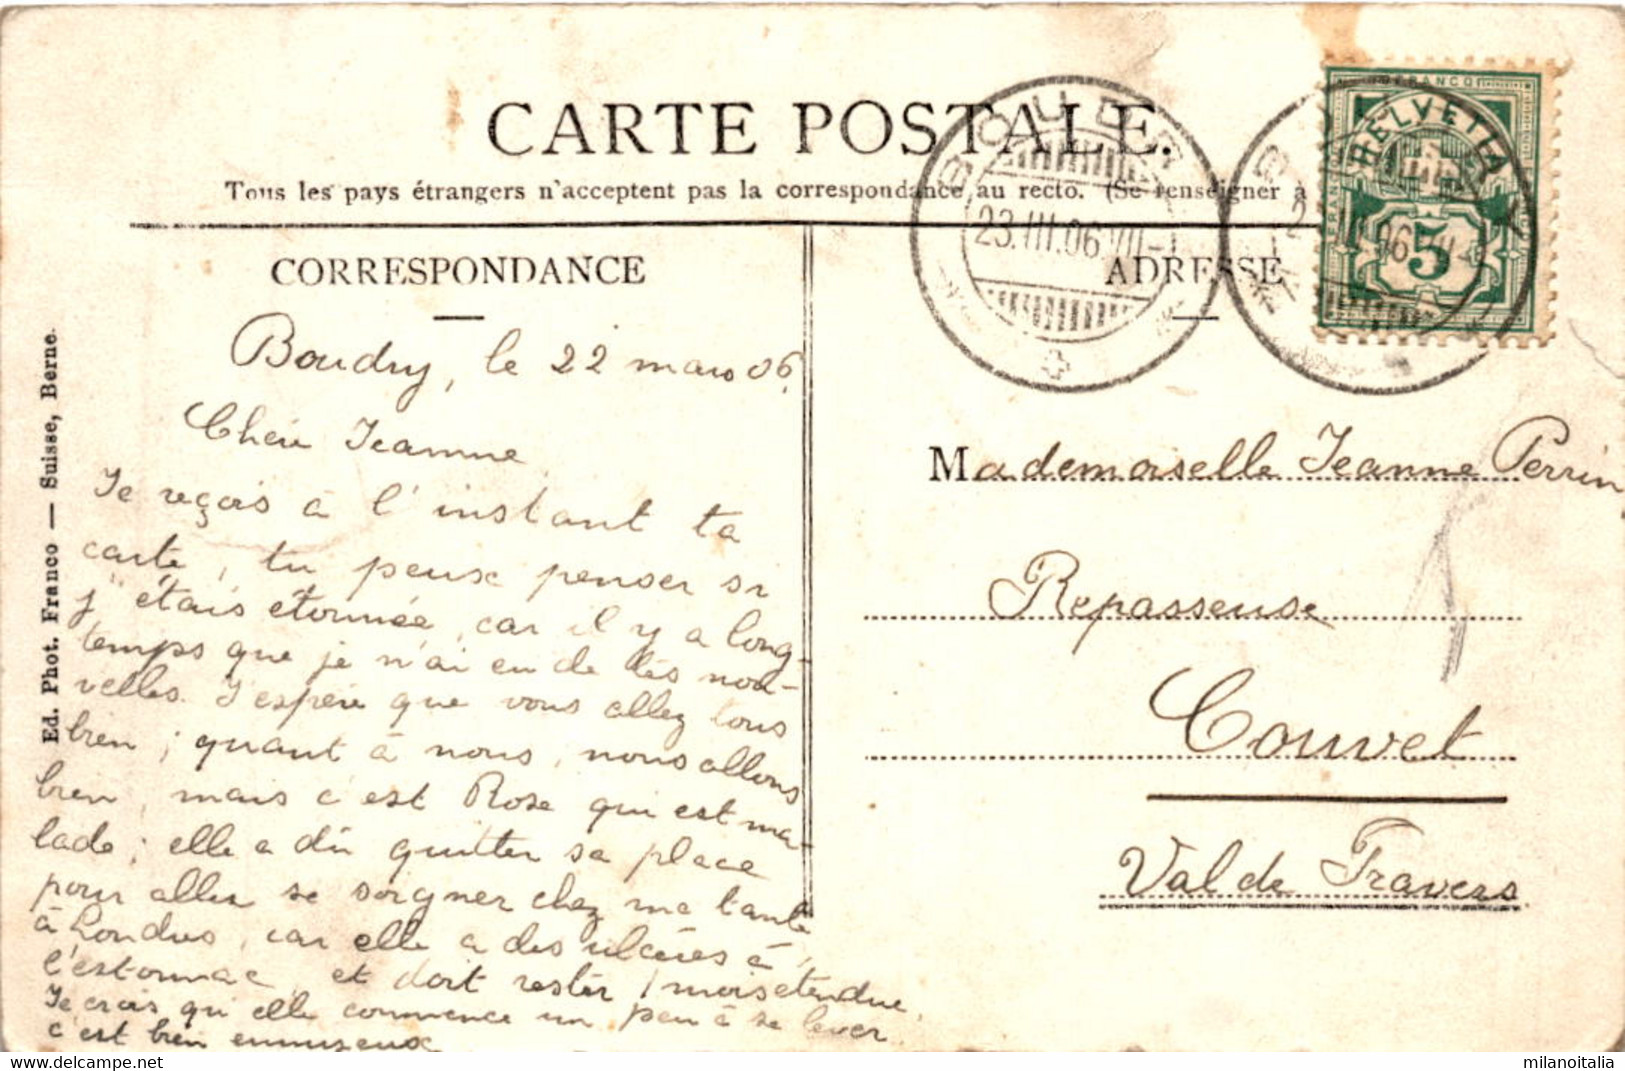 CARTE POSTALE.
Tous les pays étrangers n'acceptent pas la correspondance au recto. (Se renseigner à
CORRESPONDANCE
Boudry, le 22 mars 06.
Chère Jeanne
Je reçois à l'instant ta
carte, tu peux penser si
j'étais étonnée, car il y a long-
temps que je n'ai eu de tes nou-
velles. J'espère que vous allez tous
bien; quant à nous, nous allons
bien, mais c'est Rose qui est ma-
lade; elle a dû quitter sa place
pour aller se soigner chez ma tante
à Londres, car elle a des ulcères à
l'estomac et doit rester 1 mois étendue.
Je crois qu'elle commence un peu à se lever
c'est bien ennuyeux
Ed. Phot. Franco — Suisse, Berne.
ADRESSE
Mademoiselle Jeanne Perrin
Repasseuse
Couvet
Val de Travers
BOUDRY
23.III.06.VII-
FRANCO
HELVETIA
5
milanoitalia